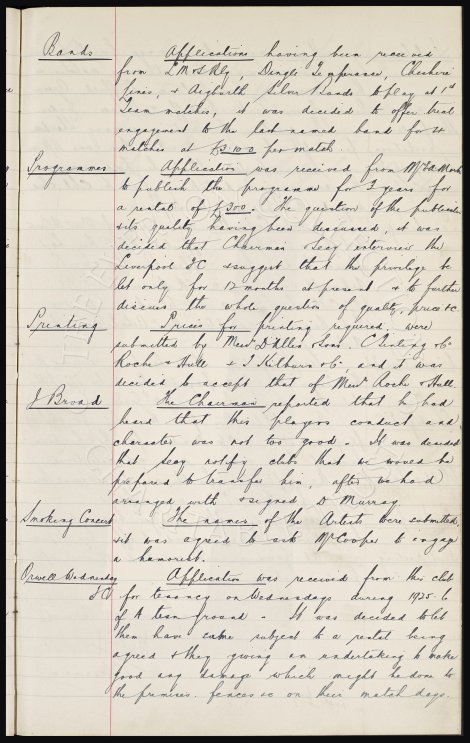 Bands Applications having been received
from LM&S Rly, Dingle Temperance, Cheshire
Lines, & Aigburth Silver Bands to play at 1st
Team matches, it was decided to offer trial
engagement to the last named band for 4
matches at £3.10.0 per match.
Programmes Application was received from Mr
to publish the programme for 3 years for
a rental of £300. The question of the publication
& its quality having been discussed, it was
decided that Chairman & Secy interview the
Liverpool FC & suggest that the privilege be
let only for 12 months at present & to further
discuss the whole question of quality, price &c
Printing Prices for printing required, were
submitted by Messrs D Allen & Sons, C Co
Roche & Hull & J Kilburn & Co, and it was
decided to accept that of Messrs Roche & Hull.
J Broad The Chairman reported that he had
heard that this players conduct and
character was not too good - It was decided
that Secy notify clubs that we would be
prepared to transfer him, after we had
arranged with & signed, D Murray.
Smoking Concert The names of the Artists were submitted,
& it was agreed to ask Mr Cooper to engage
a humorist.
Orwell Wednesday Application was received from this club
FC for tenancy on Wednesdays during 1925-6
of A team ground - It was decided to let
them have same subject to a rental being
agreed & they giving an undertaking to make
good any damage which might be done to
the premises, fences &c on their match days.